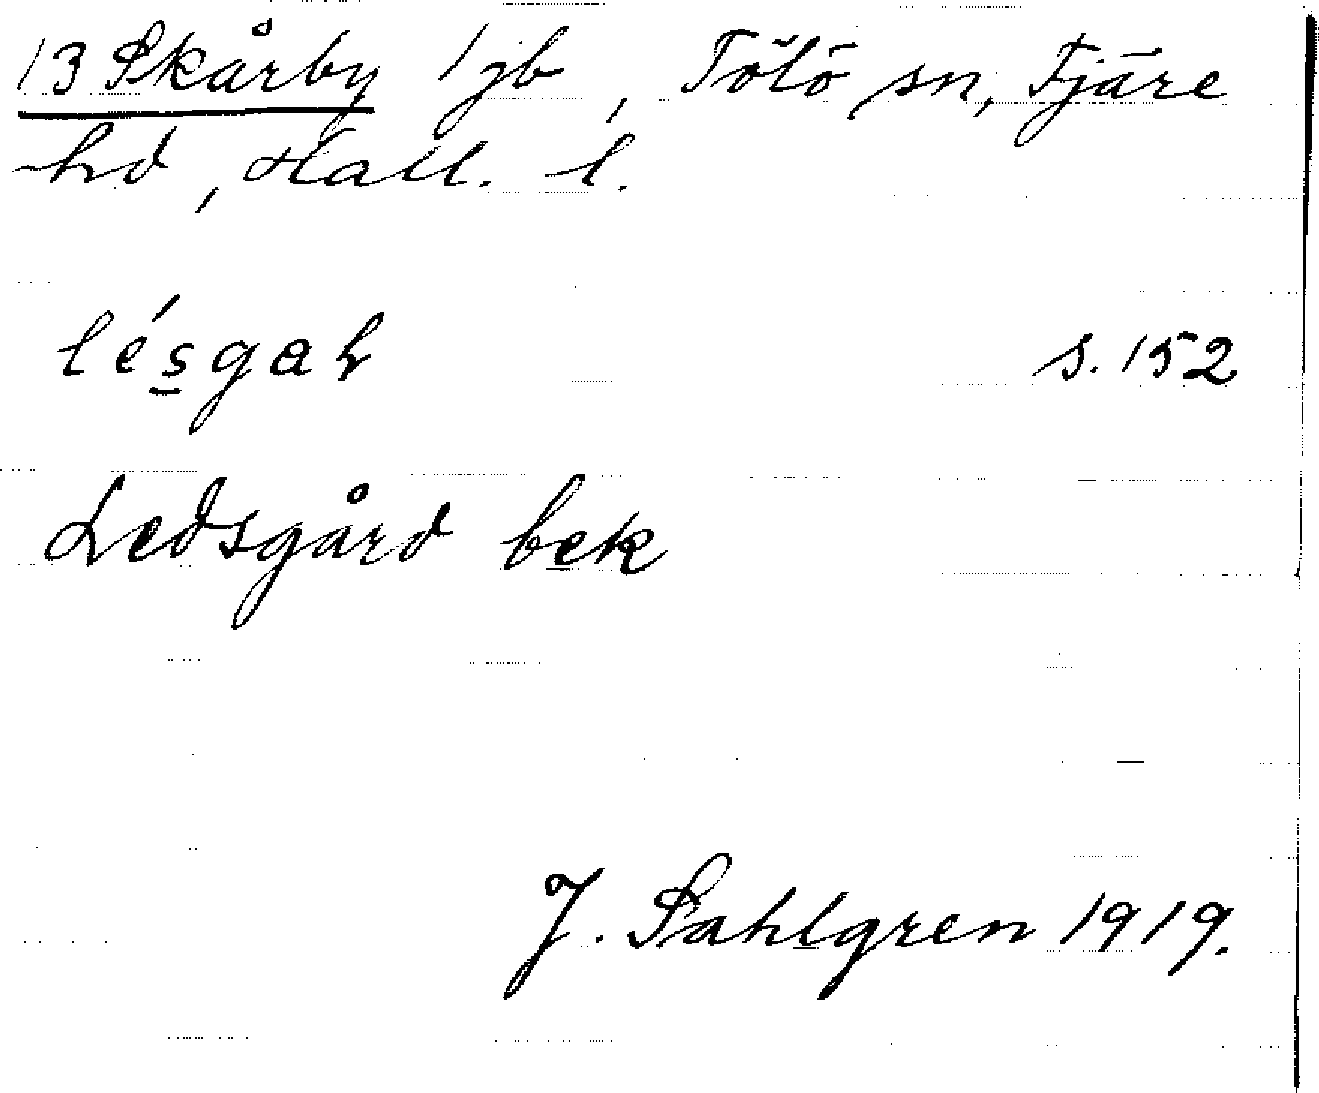 13 Skårby 1 jb, Tölö sn, Fjäre
hd, Hall. l.
lésgah s. 152
Ledsgård bek
J. Sahlgren 1919.